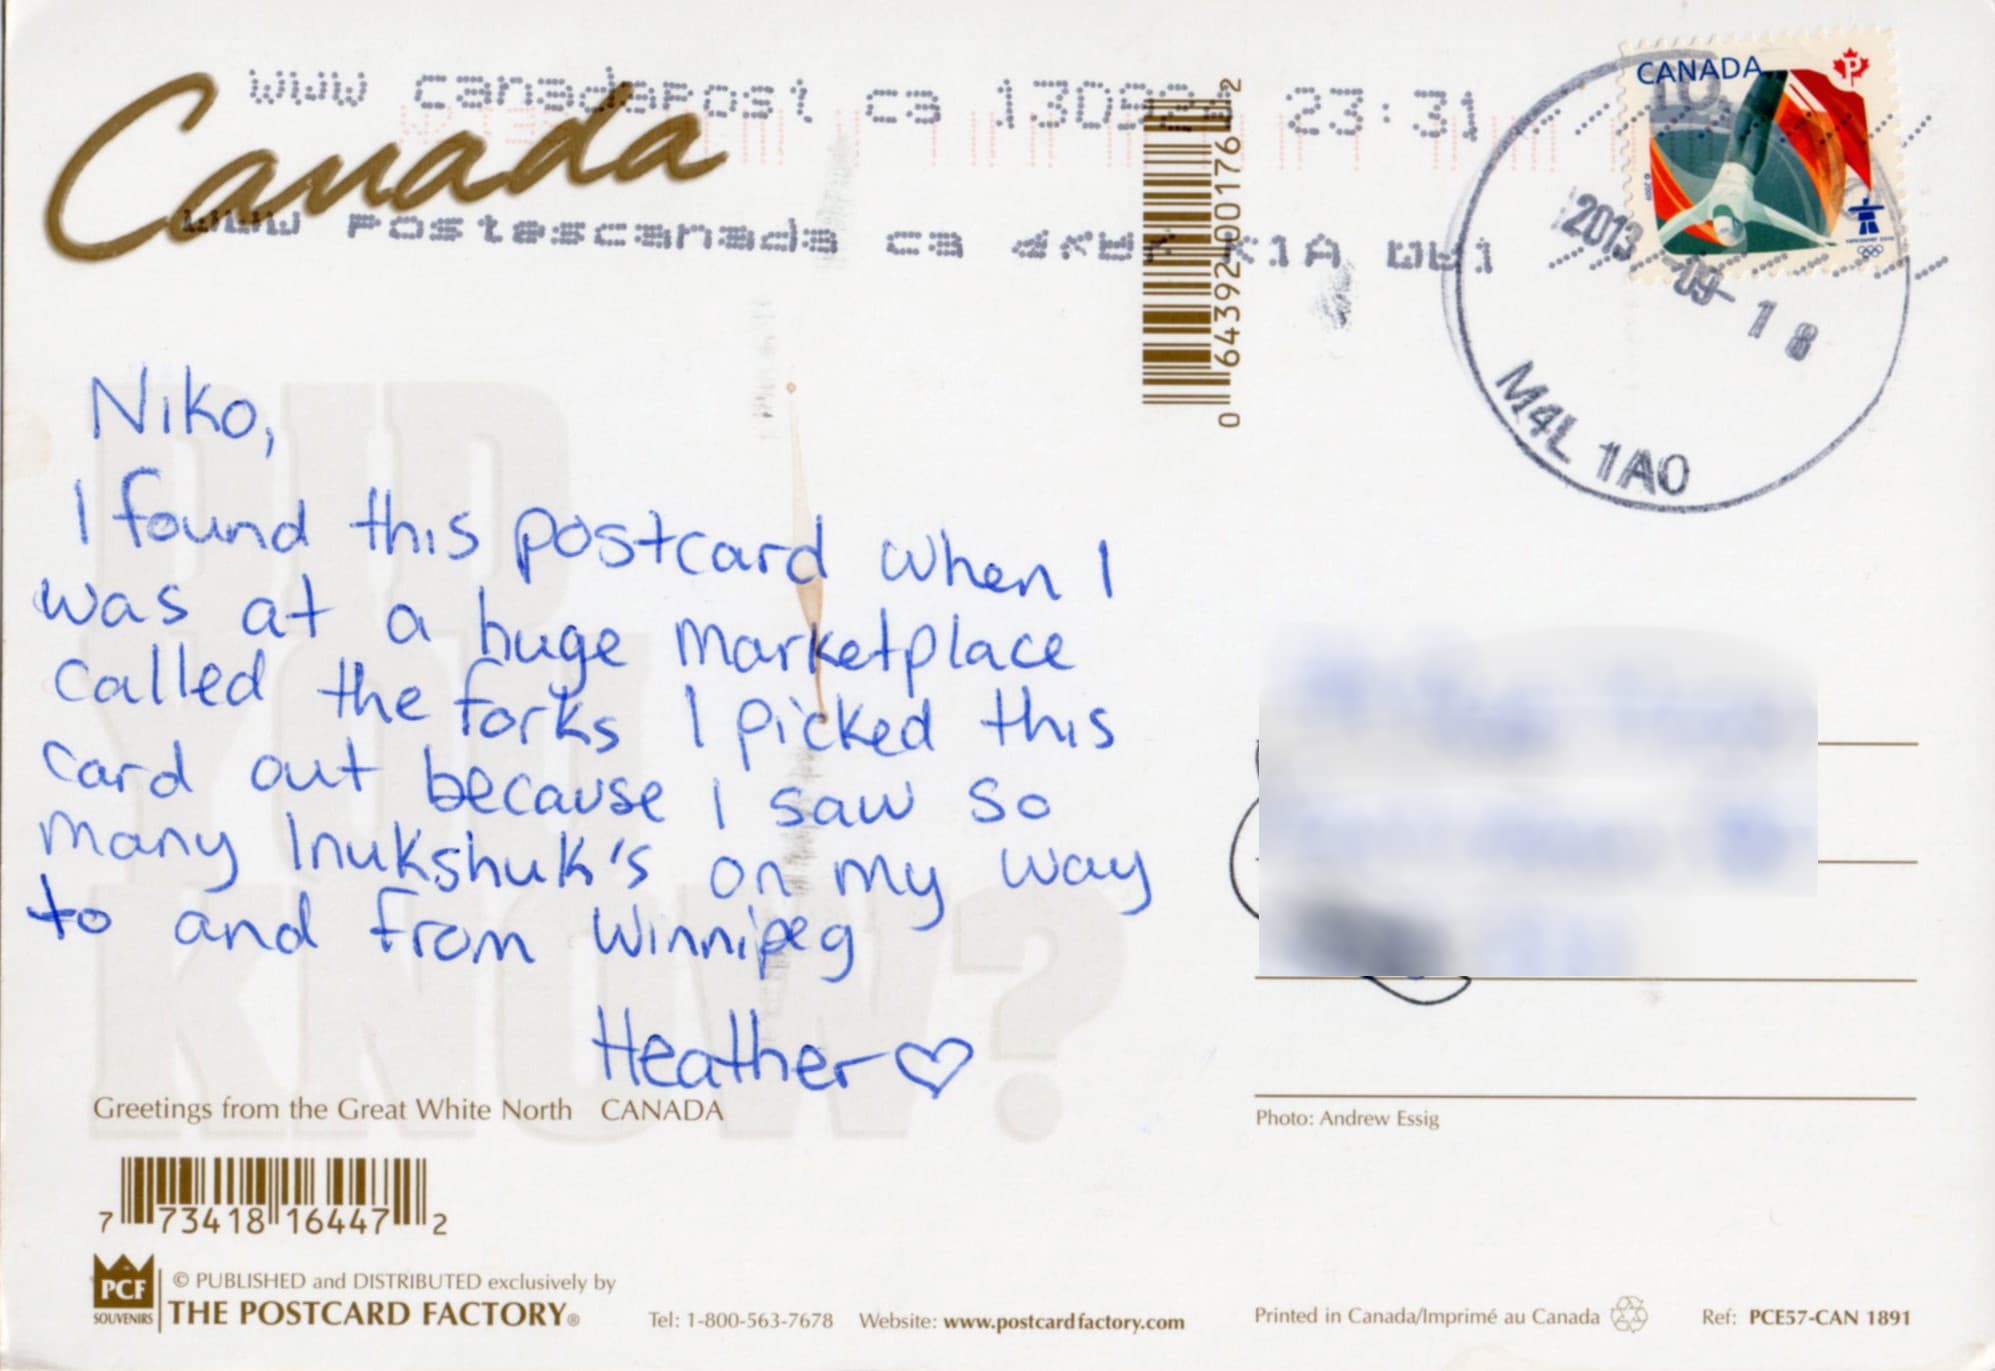 Canada
www canadapost ca 23:31
www postescanada ca K1A
0 64392 00176 2
CANADA
P
2013 -09- 18
M4L 1A0
DID
YOU
KNOW?
Niko,
I found this postcard when I
was at a huge marketplace
called the forks I picked this
card out because I saw so
many Inukshuk's on my way
to and from Winnipeg
Heather♡
Greetings from the Great White North CANADA
Photo: Andrew Essig
7 73418 16447 2
PCF
SOUVENIRS
© PUBLISHED and DISTRIBUTED exclusively by
THE POSTCARD FACTORY®
Tel: 1-800-563-7678 Website: www.postcardfactory.com
Printed in Canada/Imprimé au Canada
Ref: PCE57-CAN 1891